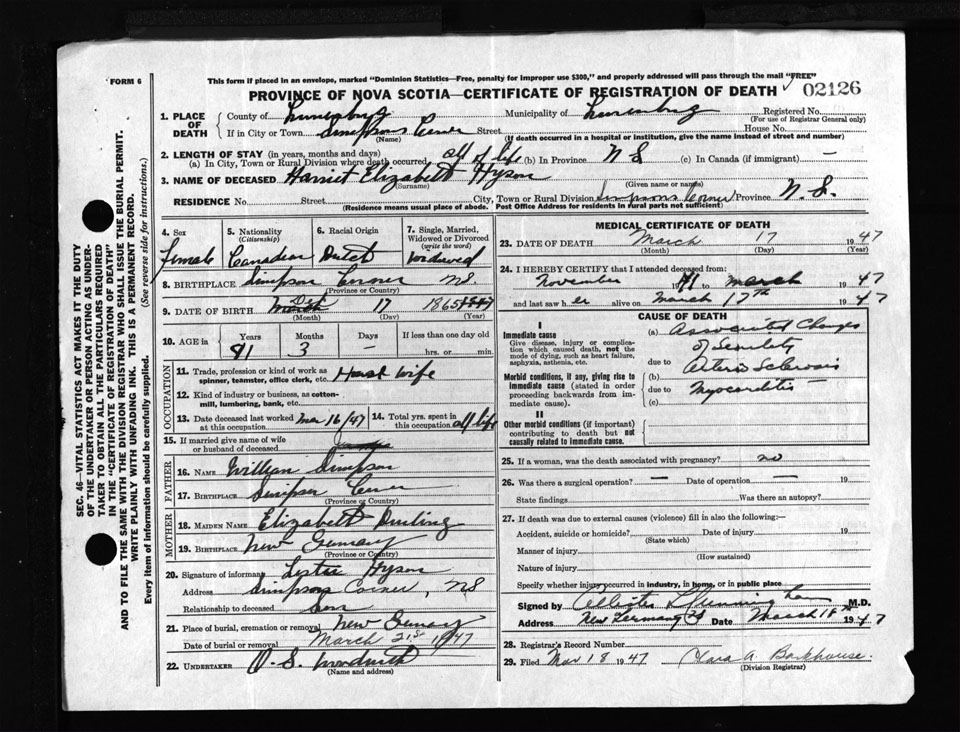 FORM 6
This form if placed in an envelope, marked "Dominion Statistics—Free, penalty for improper use $300," and properly addressed will pass through the mail "FREE"
PROVINCE OF NOVA SCOTIA—CERTIFICATE OF REGISTRATION OF DEATH
02126
1. PLACE OF DEATH
County of Lunenburg Municipality of Lunenburg Registered No.
(For use of Registrar General only)
If in City or Town Simpsons Corner Street House No.
(Name) (If death occurred in a hospital or institution, give the name instead of street and number)
2. LENGTH OF STAY (in years, months and days)
(a) In City, Town or Rural Division where death occurred all of life (b) In Province N S (c) In Canada (if immigrant) —
3. NAME OF DECEASED Harriet Elizabeth Hyson
(Surname) (Given name or names)
RESIDENCE No. Street City, Town or Rural Division Simpsons Corner Province N. S.
(Residence means usual place of abode. Post Office Address for residents in rural parts not sufficient)
4. Sex
Female
5. Nationality
(Citizenship)
Canadian
6. Racial Origin
Dutch
7. Single, Married, Widowed or Divorced
(write the word)
Widowed
8. BIRTHPLACE Simpson Corner NS.
(Province or Country)
9. DATE OF BIRTH March Dec 17 1865
(Month) (Day) (Year)
10. AGE in Years Months Days If less than one day old
81 3 — hrs. or min.
OCCUPATION
11. Trade, profession or kind of work as spinner, teamster, office clerk, etc. House wife
12. Kind of industry or business, as cotton-mill, lumbering, bank, etc.
13. Date deceased last worked at this occupation Mar 16/47
14. Total yrs. spent in this occupation all life
15. If married give name of wife or husband of deceased
FATHER
16. NAME William Simpson
17. BIRTHPLACE Simpson Corner
(Province or Country)
MOTHER
18. MAIDEN NAME Elizabeth
19. BIRTHPLACE New Germany
(Province or Country)
20. Signature of informant Hyson
Address Simpsons Corner, NS
Relationship to deceased Son
21. Place of burial, cremation or removal New Germany
Date of burial or removal March 21st 1947
22. UNDERTAKER O. S.
(Name and address)
MEDICAL CERTIFICATE OF DEATH
23. DATE OF DEATH March 17 1947
(Month) (Day) (Year)
24. I HEREBY CERTIFY that I attended deceased from:
November to March 1947
and last saw her alive on March 17th 1947
CAUSE OF DEATH
I
Immediate cause
Give disease, injury or complication which caused death, not the mode of dying, such as heart failure, asphyxia, asthenia, etc.
(a) Associated Changes
of Senility
due to Arterio Sclerosis
Morbid conditions, if any, giving rise to immediate cause (stated in order proceeding backwards from immediate cause).
(b)
due to Myocarditis
(c)
II
Other morbid conditions (if important) contributing to death but not causally related to immediate cause.
25. If a woman, was the death associated with pregnancy? no
26. Was there a surgical operation? — Date of operation — 19
State findings Was there an autopsy?
27. If death was due to external causes (violence) fill in also the following:—
Accident, suicide or homicide? Date of injury 19
(State which)
Manner of injury
(How sustained)
Nature of injury
Specify whether injury occurred in industry, in home, or in public place
Signed by M.D.
Address New Germany NS Date March 18 1947
28. Registrar's Record Number
29. Filed Mar 18 1947 Clara A. Barkhouse.
(Division Registrar)
SEC. 46—VITAL STATISTICS ACT MAKES IT THE DUTY
OF THE UNDERTAKER OR PERSON ACTING AS UNDER-
TAKER TO OBTAIN ALL THE PARTICULARS REQUIRED
IN THE "CERTIFICATE OF REGISTRATION OF DEATH"
AND TO FILE THE SAME WITH THE DIVISION REGISTRAR WHO SHALL ISSUE THE BURIAL PERMIT.
WRITE PLAINLY WITH UNFADING INK. THIS IS A PERMANENT RECORD.
Every item of information should be carefully supplied. (See reverse side for instructions.)